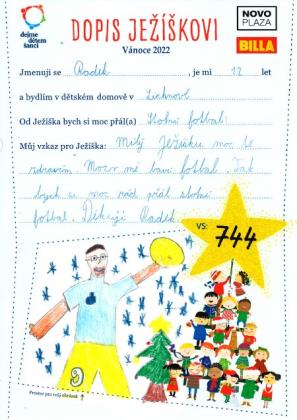 dejme dětem šanci
DOPIS JEŽÍŠKOVI
Vánoce 2022
NOVO PLAZA
BILLA
Jmenuji se Radek, je mi 12 let
a bydlím v dětském domově v
Od Ježíška bych si moc přál(a) Stolní fotbal!
Můj vzkaz pro Ježíška: Milý Ježíšku moc tě
zdravím. Moc mě baví fotbal. Tak
bych si moc rád přál stolní
fotbal. Děkuji Radek
VS: 744
Prostor pro tvůj obrázek